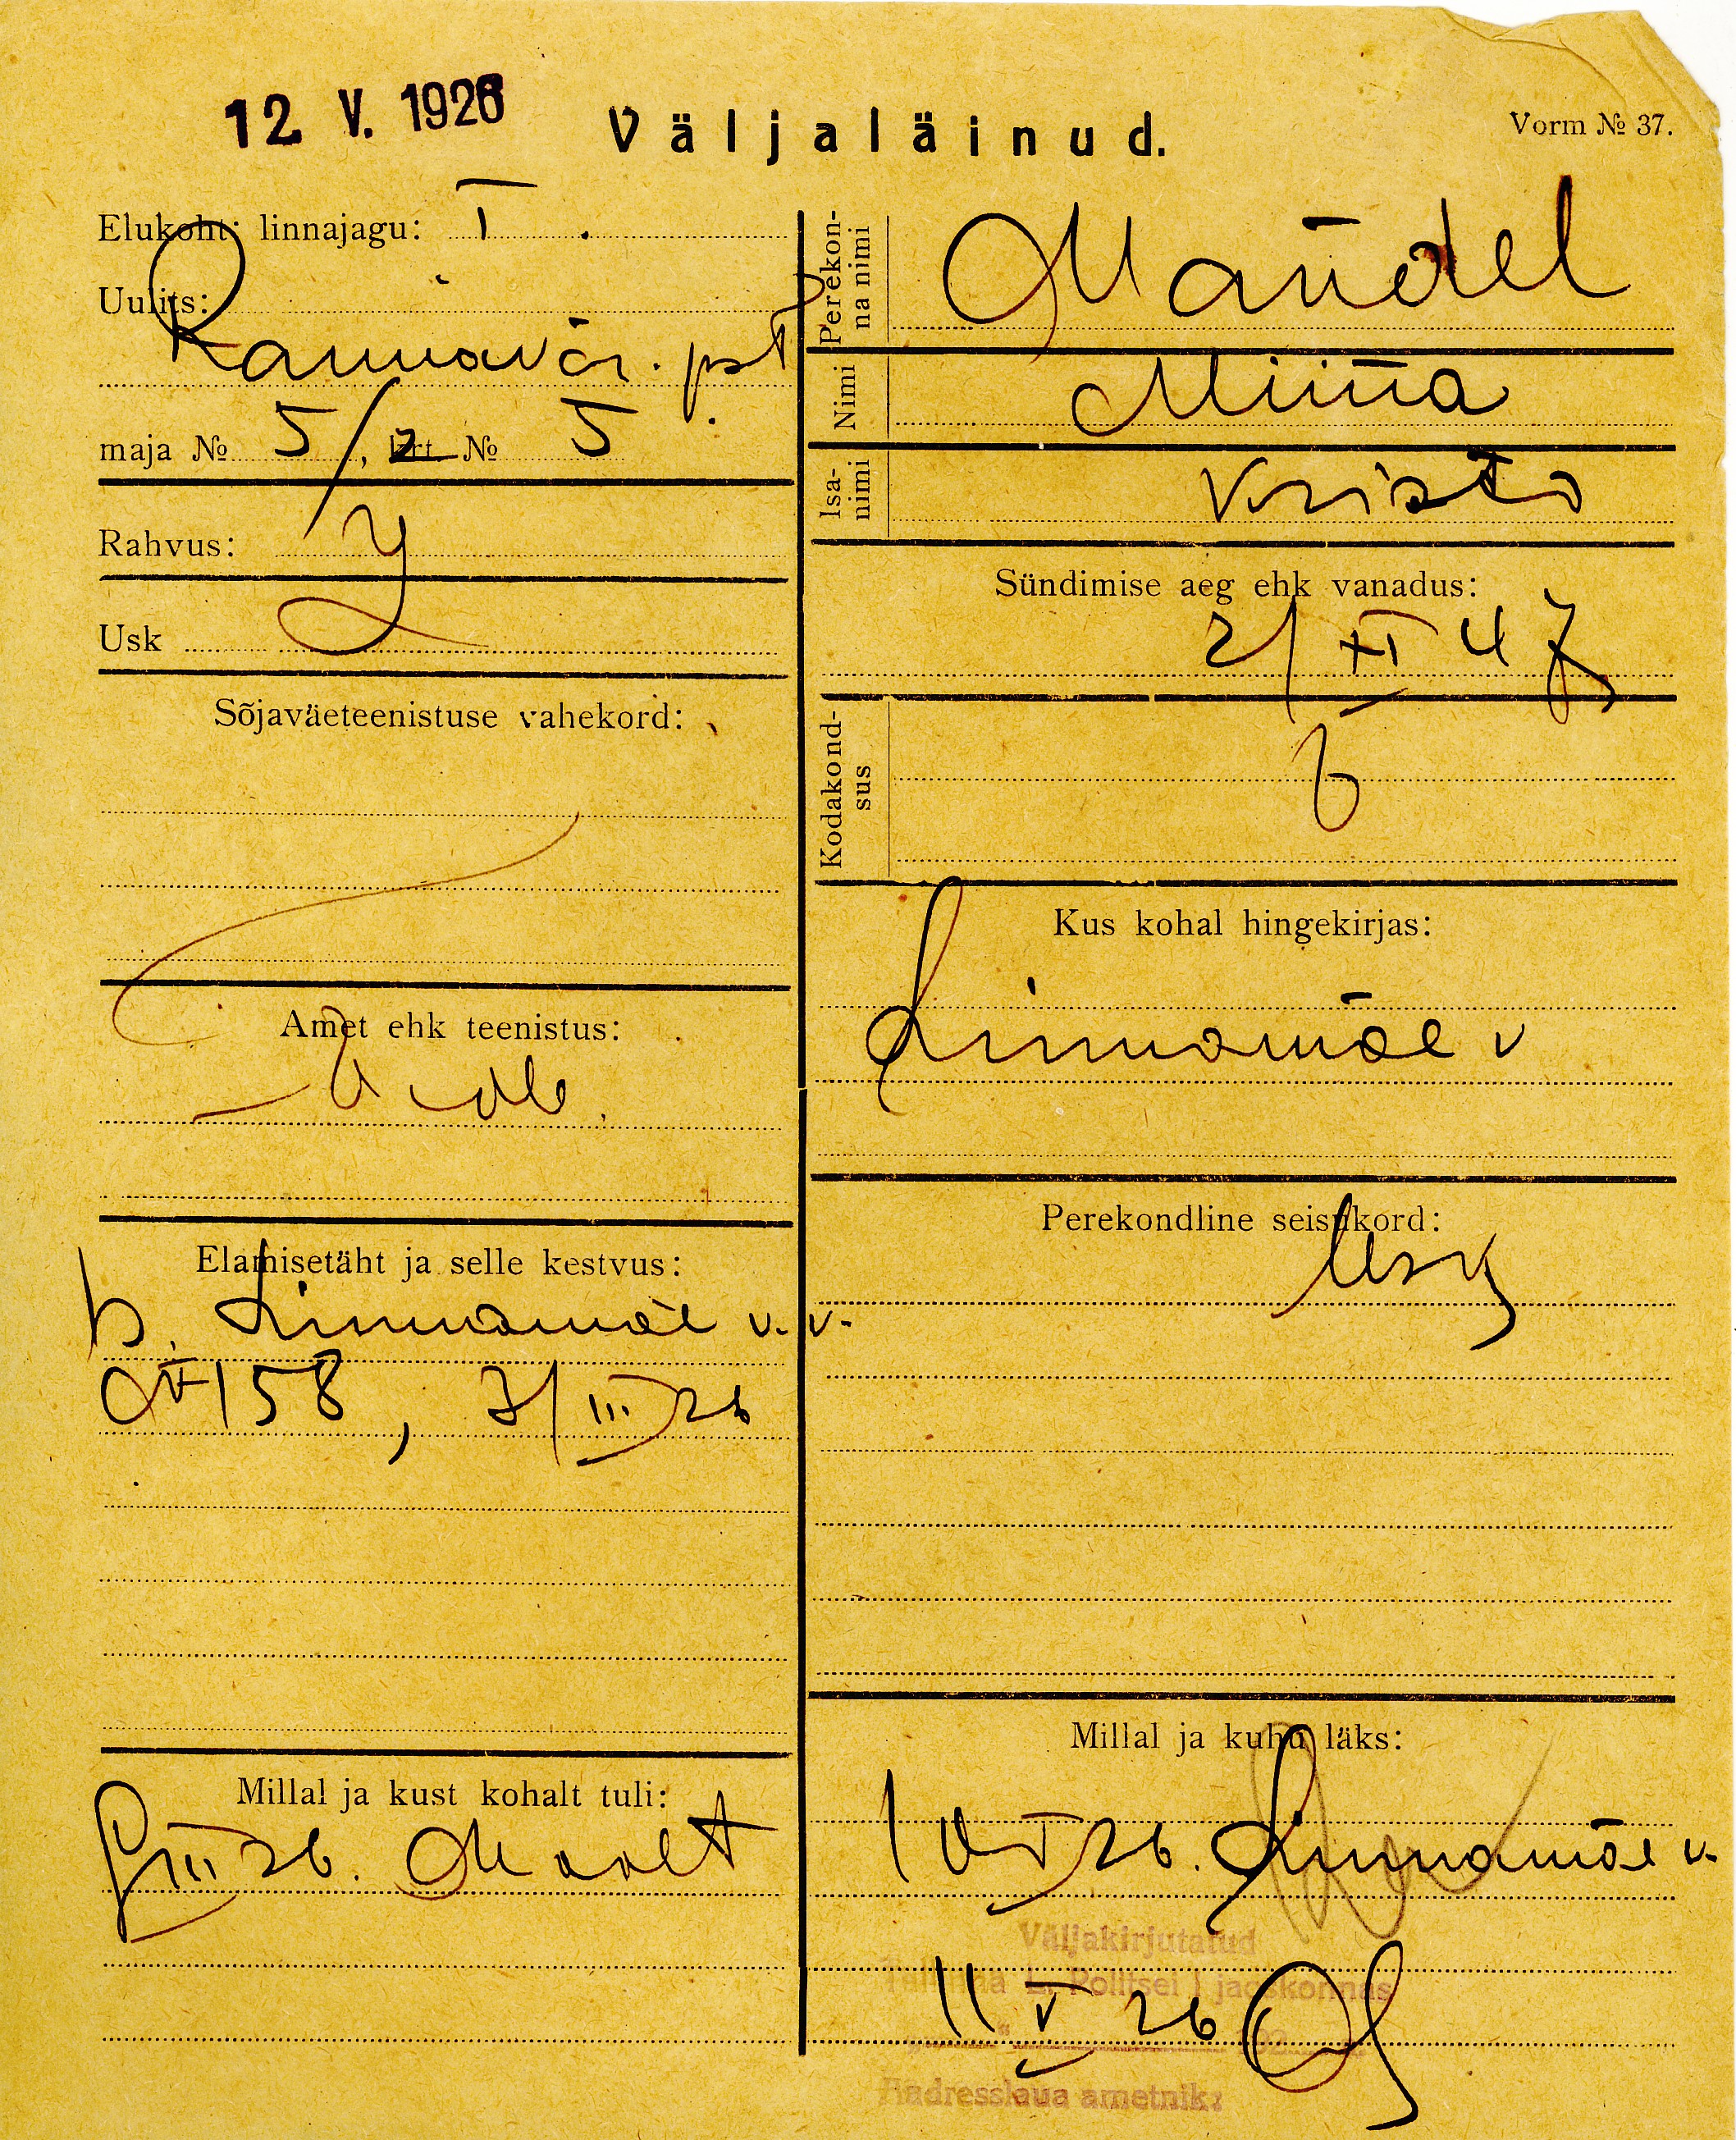 12 V. 1926
Väljaläinud.
Vorm № 37.
Elukoht: linnajagu: I.
Uulits:
Rannavär. pst
maja № 5/2, krt. № 5
Rahvus:
Usk
Sõjaväeteenistuse vahekord:
Amet ehk teenistus:
Elamisetäht ja selle kestvus:
b. Linnamäe v. v.
№ 158, 7/III 26
Millal ja kust kohalt tuli:
III 26. Maalt
Perekonna nimi Mandel
Nimi Miina
Isanimi Kristo
Sündimise aeg ehk vanadus:
2/XI 47
Kodakondsus
Kus kohal hingekirjas:
Linnamäe v
Perekondline seisukord:
lesk
Millal ja kuhu läks:
10 V 26. Linnamäe v.
Väljakirjutatud
Tallinna L. Politsei I jaoskonnas
11 V 26
Aadresslaua ametnik: